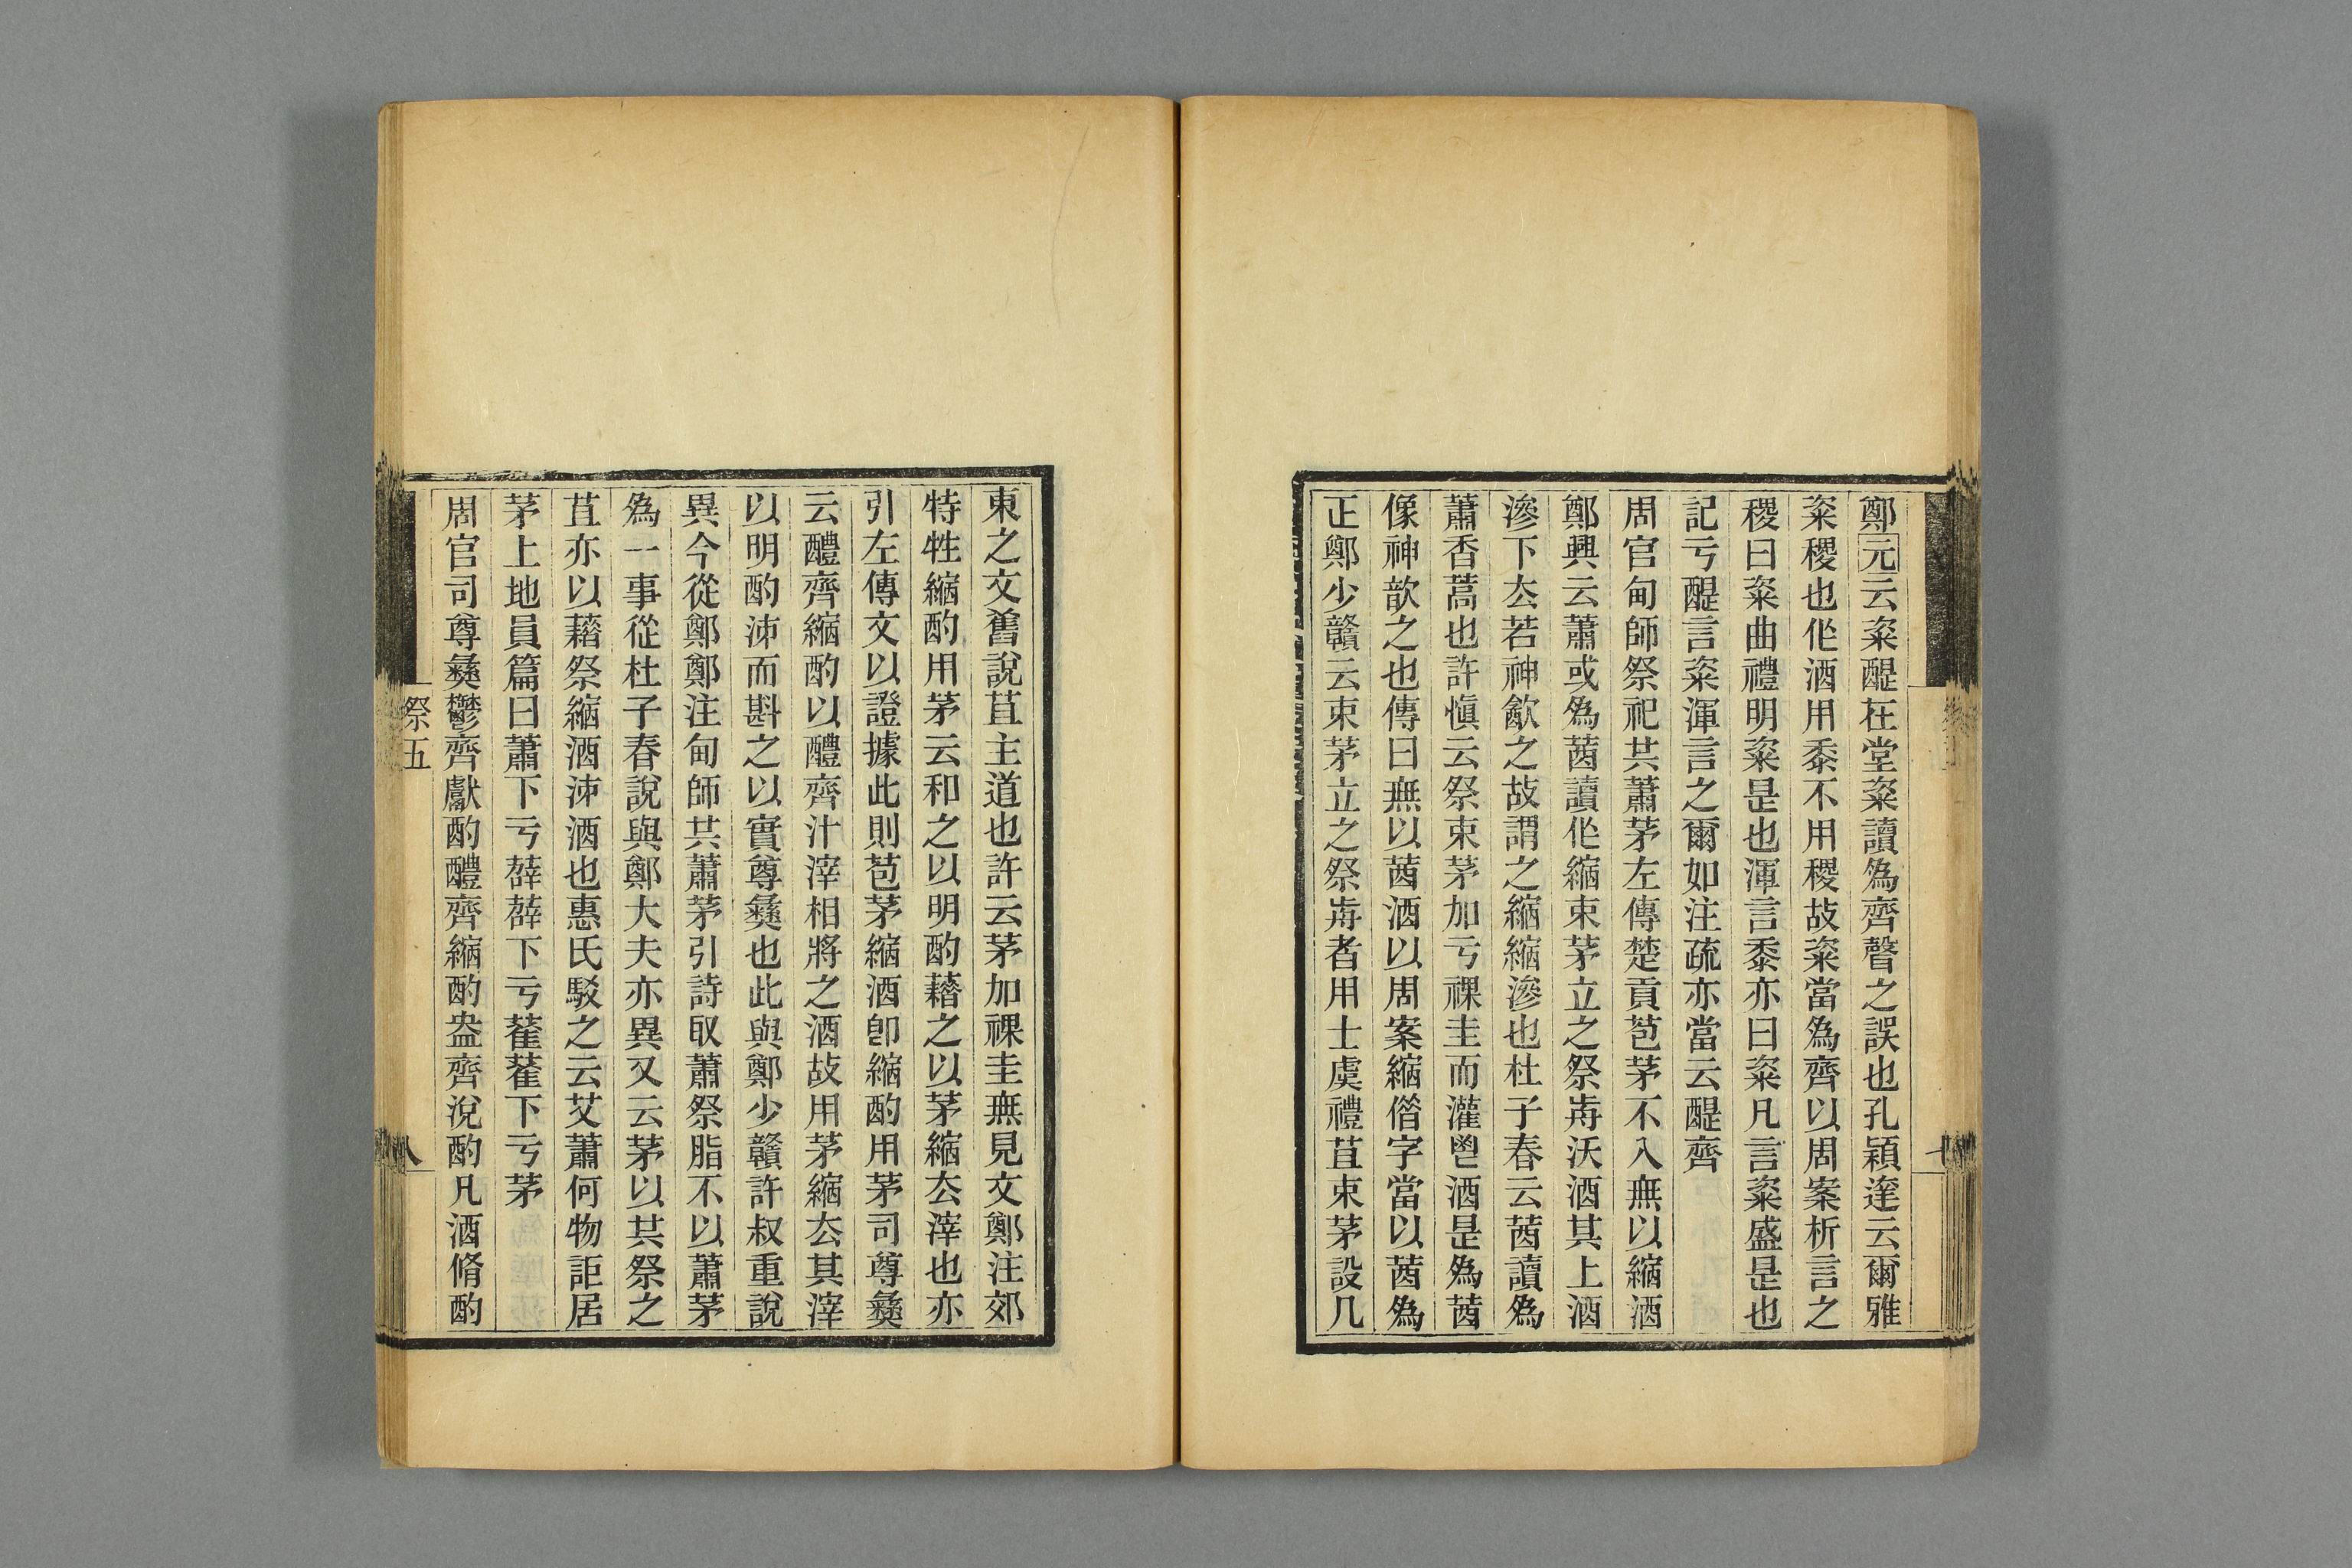 鄭元云粢醍在堂粢讀爲齊聲之誤也孔穎達云爾雅
粢稷也作酒用黍不用稷故粢當爲齊以周案析言之
稷曰粢曲禮明粢是也渾言黍亦曰粢凡言粢盛是也
記亏醍言粢渾言之爾如注疏亦當云醍齊
周官甸師祭祀共蕭茅左傳楚貢苞茅不入無以縮酒
鄭興云蕭或爲莤讀作縮束茅立之祭歬沃酒其上酒
滲下厺若神歈之故謂之縮縮滲也杜子春云莤讀爲
蕭香蒿也許愼云祭束茅加亏祼圭而灌鬯酒是爲莤
像神歆之也傳曰無以莤酒以周案縮偕字當以莤爲
正鄭少贛云束茅立之祭歬者用士虞禮苴束茅設几
東之文舊說苴主道也許云茅加祼圭無見文鄭注郊
特牲縮酌用茅云和之以明酌藉之以茅縮厺滓也亦
引左傳文以證據此則苞茅縮酒卽縮酌用茅司尊彝
云醴齊縮酌以醴齊汁滓相將之酒故用茅縮厺其滓
以明酌泲而斟之以實尊彝也此與鄭少贛許叔重說
異今從鄭鄭注甸師共蕭茅引詩取蕭祭脂不以蕭茅
爲一事從杜子春說與鄭大夫亦異又云茅以其祭之
苴亦以藉祭縮酒泲酒也惠氏駁之云艾蕭何物詎居
茅上地員篇曰蕭下亏薜薜下亏萑萑下亏茅
周官司尊彝鬱齊獻酌醴齊縮酌盎齊涗酌凡酒脩酌
祭五
八